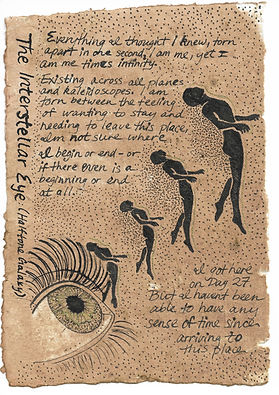 The Interstellar Eye (Halftone Galaxy)
Everything I thought I knew, torn
apart in one second, I am me, yet I
am me times infinity.
Existing across all planes
and kaleidoscopes. I am
torn between the feeling
of wanting to stay and
needing to leave this place,
I'm not sure where
I begin or end - or
if there even is a
beginning or end
at all.
I got here
on Day 27.
But I haven't been
able to have any
sense of time since
arriving to
this place.